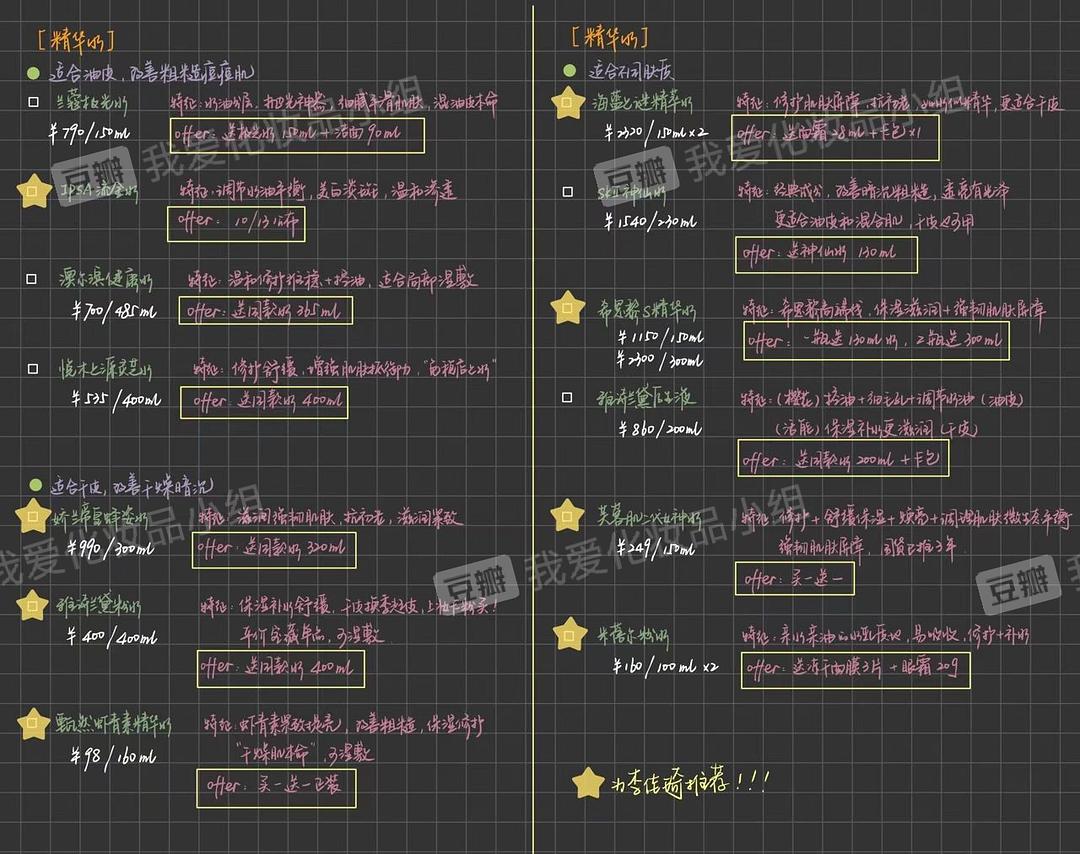 [精华水]
适合油皮，改善粗糙痘痘肌
兰蔻极光水
特征：水油分层，抛光神器，细腻平滑肌肤，混油皮本命
¥790/150ml
offer：送极光水150ml+洁面90ml
IPSA流金水
特征：调节水油平衡，美白淡斑，温和渗透
offer：10/13公布
澳尔滨健康水
特征：温和修护维稳+控油，适合局部湿敷
¥700/485ml
offer：送同款水365ml
悦木之源灵芝水
特征：修护舒缓，增强肌肤抵御力，"百搭店之水"
¥535/400ml
offer：送同款水400ml
适合干皮，改善干燥暗沉
娇兰帝皇蜂姿水
特征：滋润强韧肌肤，抗初老，滋润紧致
¥990/300ml
offer：送同款水320ml
雅诗兰黛粉水
特征：保湿补水舒缓，干皮换季起皮，上妆卡粉买！
¥400/400ml
平价宝藏单品，可湿敷
offer：送同款水400ml
自然虾青素精华水
特征：虾青素紧致提亮，改善粗糙，保湿修护
¥98/160ml
"干燥肌本命"，可湿敷
offer：买一送一正装
[精华水]
适合不同肤质
海蓝之谜精萃水
特征：修护肌肤屏障，抗初老，精华，更适合干皮
¥2320/150ml×2
offer：送面霜28ml+卡包×1
SKII神仙水
特征：经典成分，改善暗沉粗糙，透亮有光泽
¥1540/230ml
更适合油皮和混合肌，干皮也可用
offer：送神仙水130ml
希思黎S精华水
特征：希思黎高端线，保湿滋润+强韧肌肤屏障
¥1150/150ml
offer：一瓶送130ml水，2瓶送300ml
¥2300/300ml
雅诗兰黛原生液
特征：(樱花)控油+细毛孔+调节水油（油皮）
¥860/200ml
(活能)保湿补水更滋润（干皮）
offer：送同款水200ml+卡包
芙蓉肌二代女神水
特征：修护+舒缓保湿+焕亮+调理肌肤微生态平衡
¥249/150ml
强韧肌肤屏障，国货已推3年
offer：买一送一
米蓓尔粉水
特征：亲水亲油的水乳质地，易吸收，修护+补水
¥160/100ml×2
offer：送冻干面膜3片+眼霜20g
为李佳琦推荐！！！
豆瓣 我爱化妆品小组
豆瓣 我爱化妆品小组
我爱化妆品小组
豆瓣 我爱化妆品小组
豆瓣